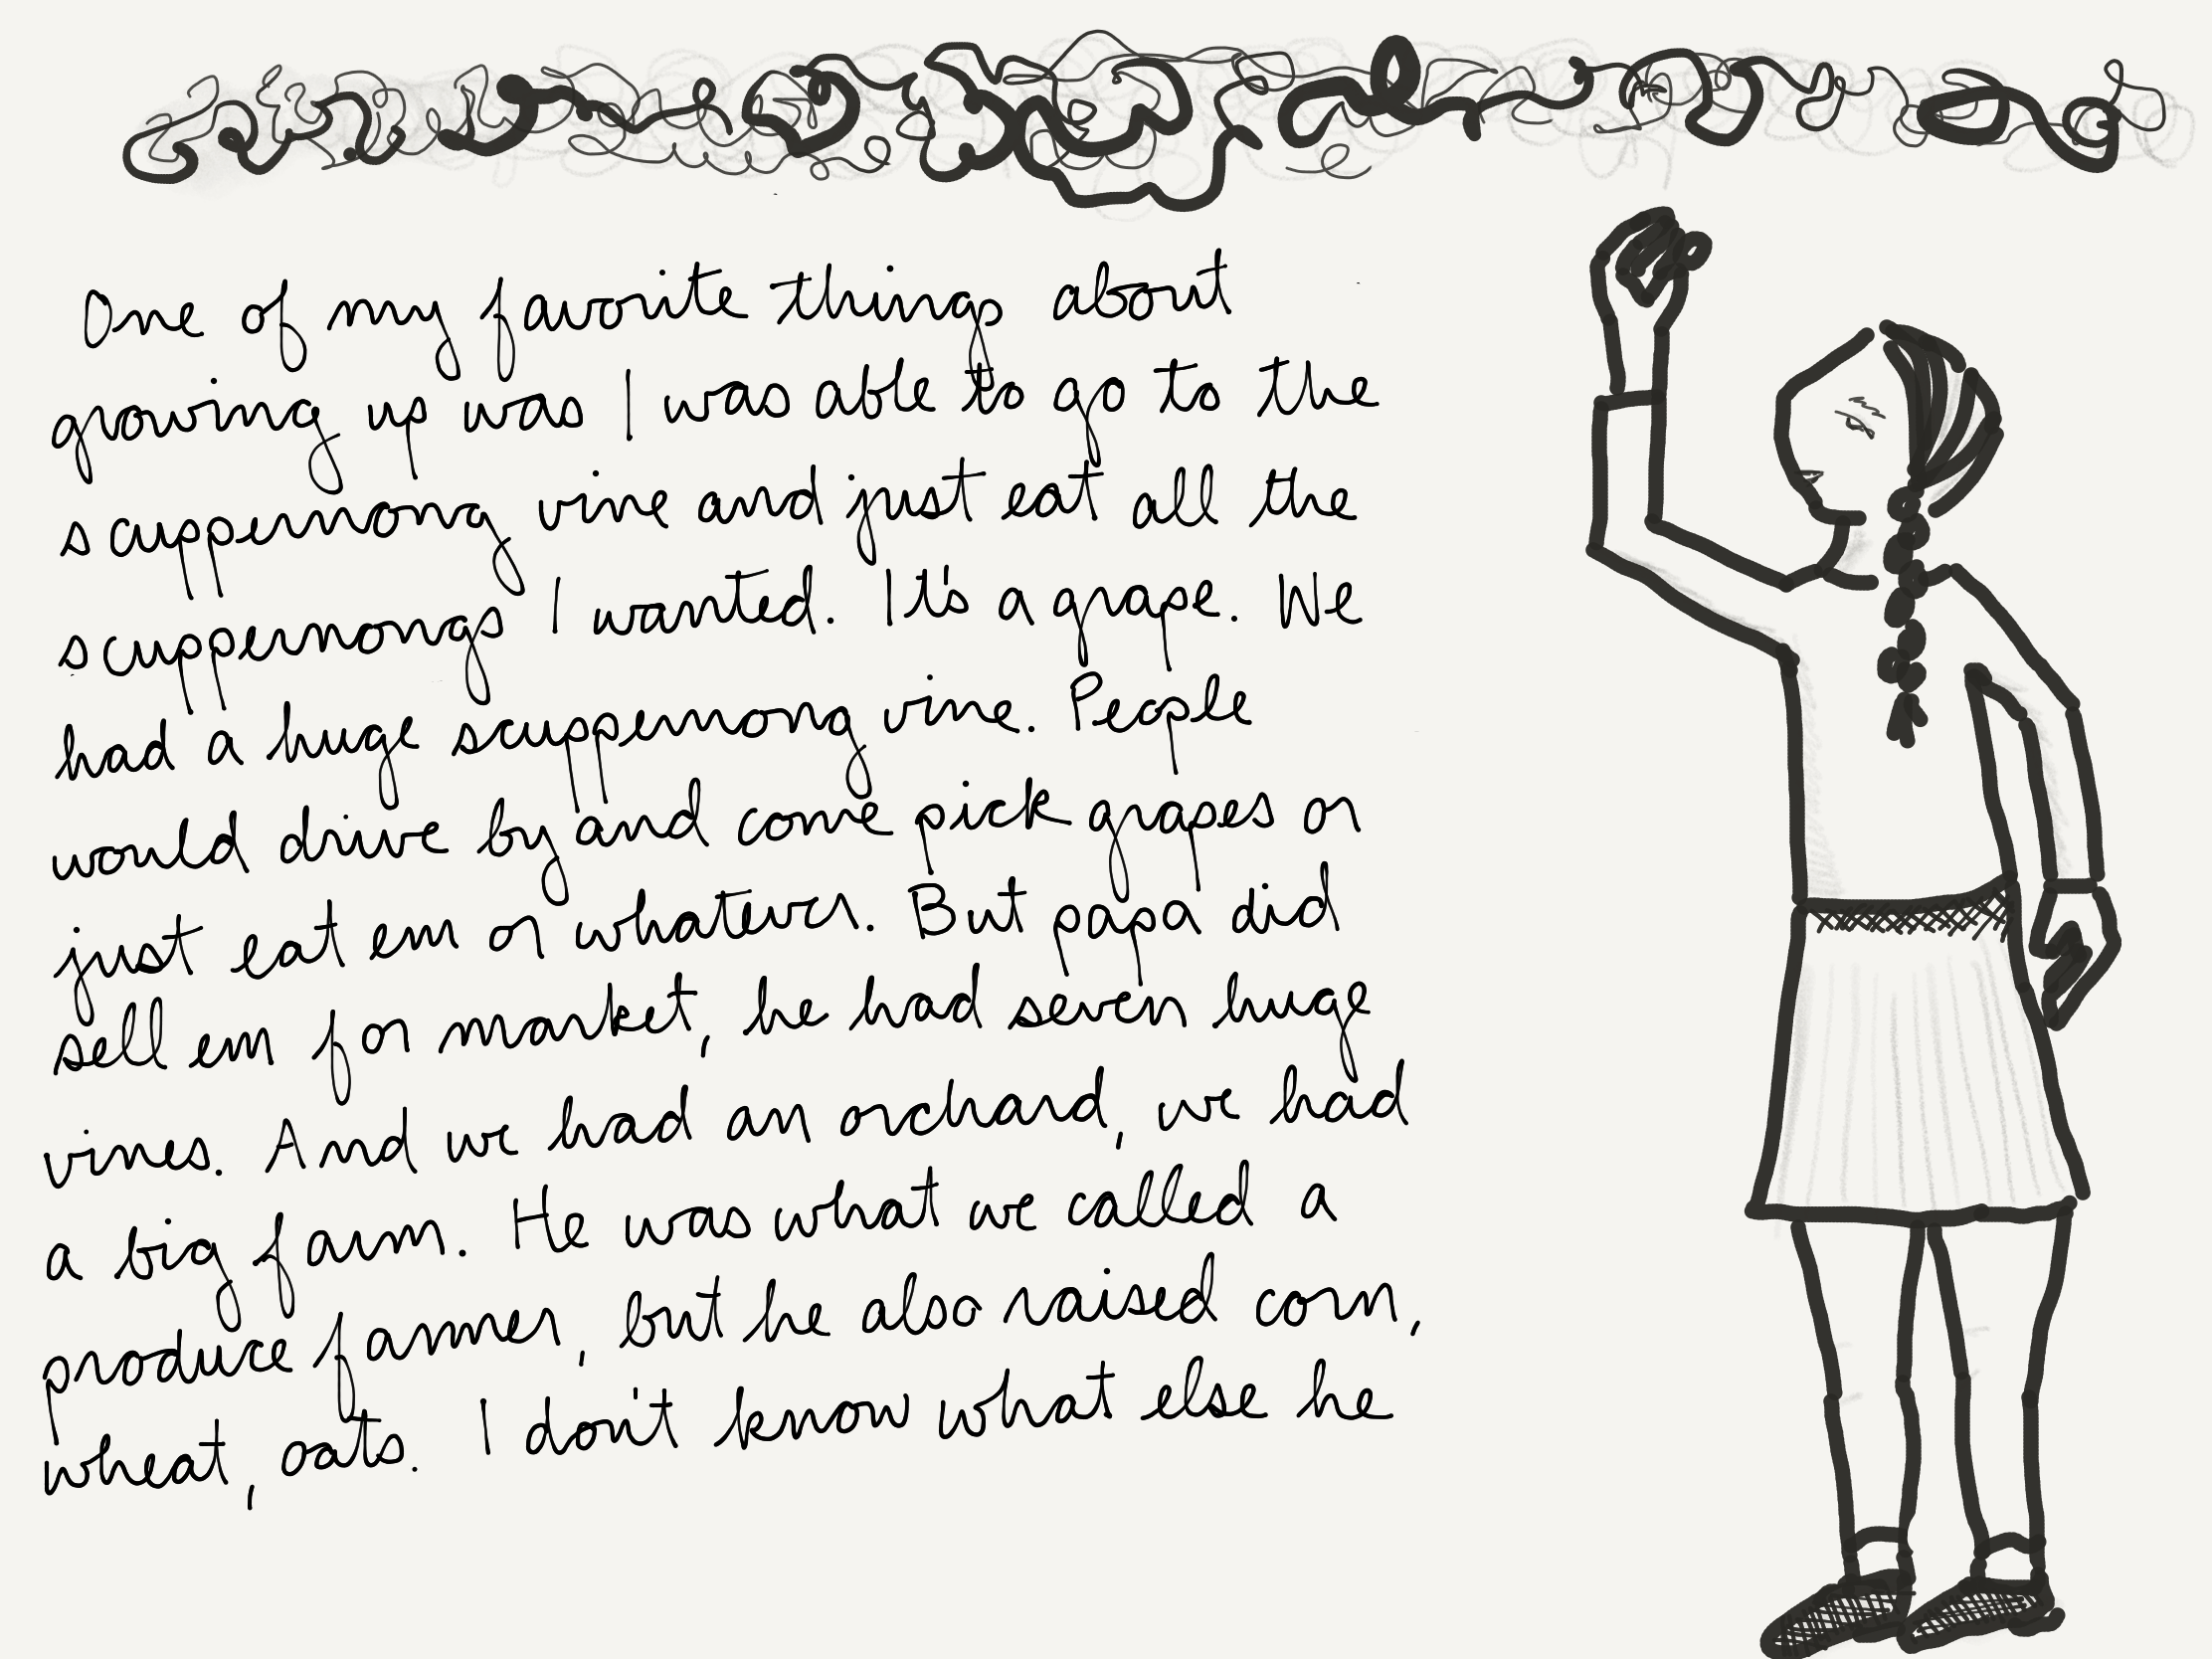 One of my favorite things about
growing up was I was able to go to the
scuppernong vine and just eat all the
scuppernongs I wanted. It's a grape. We
had a huge scuppernong vine. People
would drive by and come pick grapes or
just eat em or whatever. But papa did
sell em for market, he had seven huge
vines. And we had an orchard, we had
a big farm. He was what we called a
produce farmer, but he also raised corn,
wheat, oats. I don't know what else he